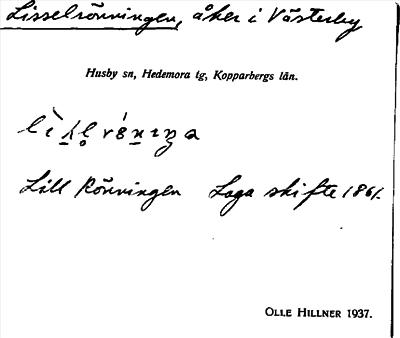 Lisselrönningen, åker i Västerby
Husby sn, Hedemora tg, Kopparbergs län.
Lill Rönningen Laga skifte 1861.
OLLE HILLNER 1937.